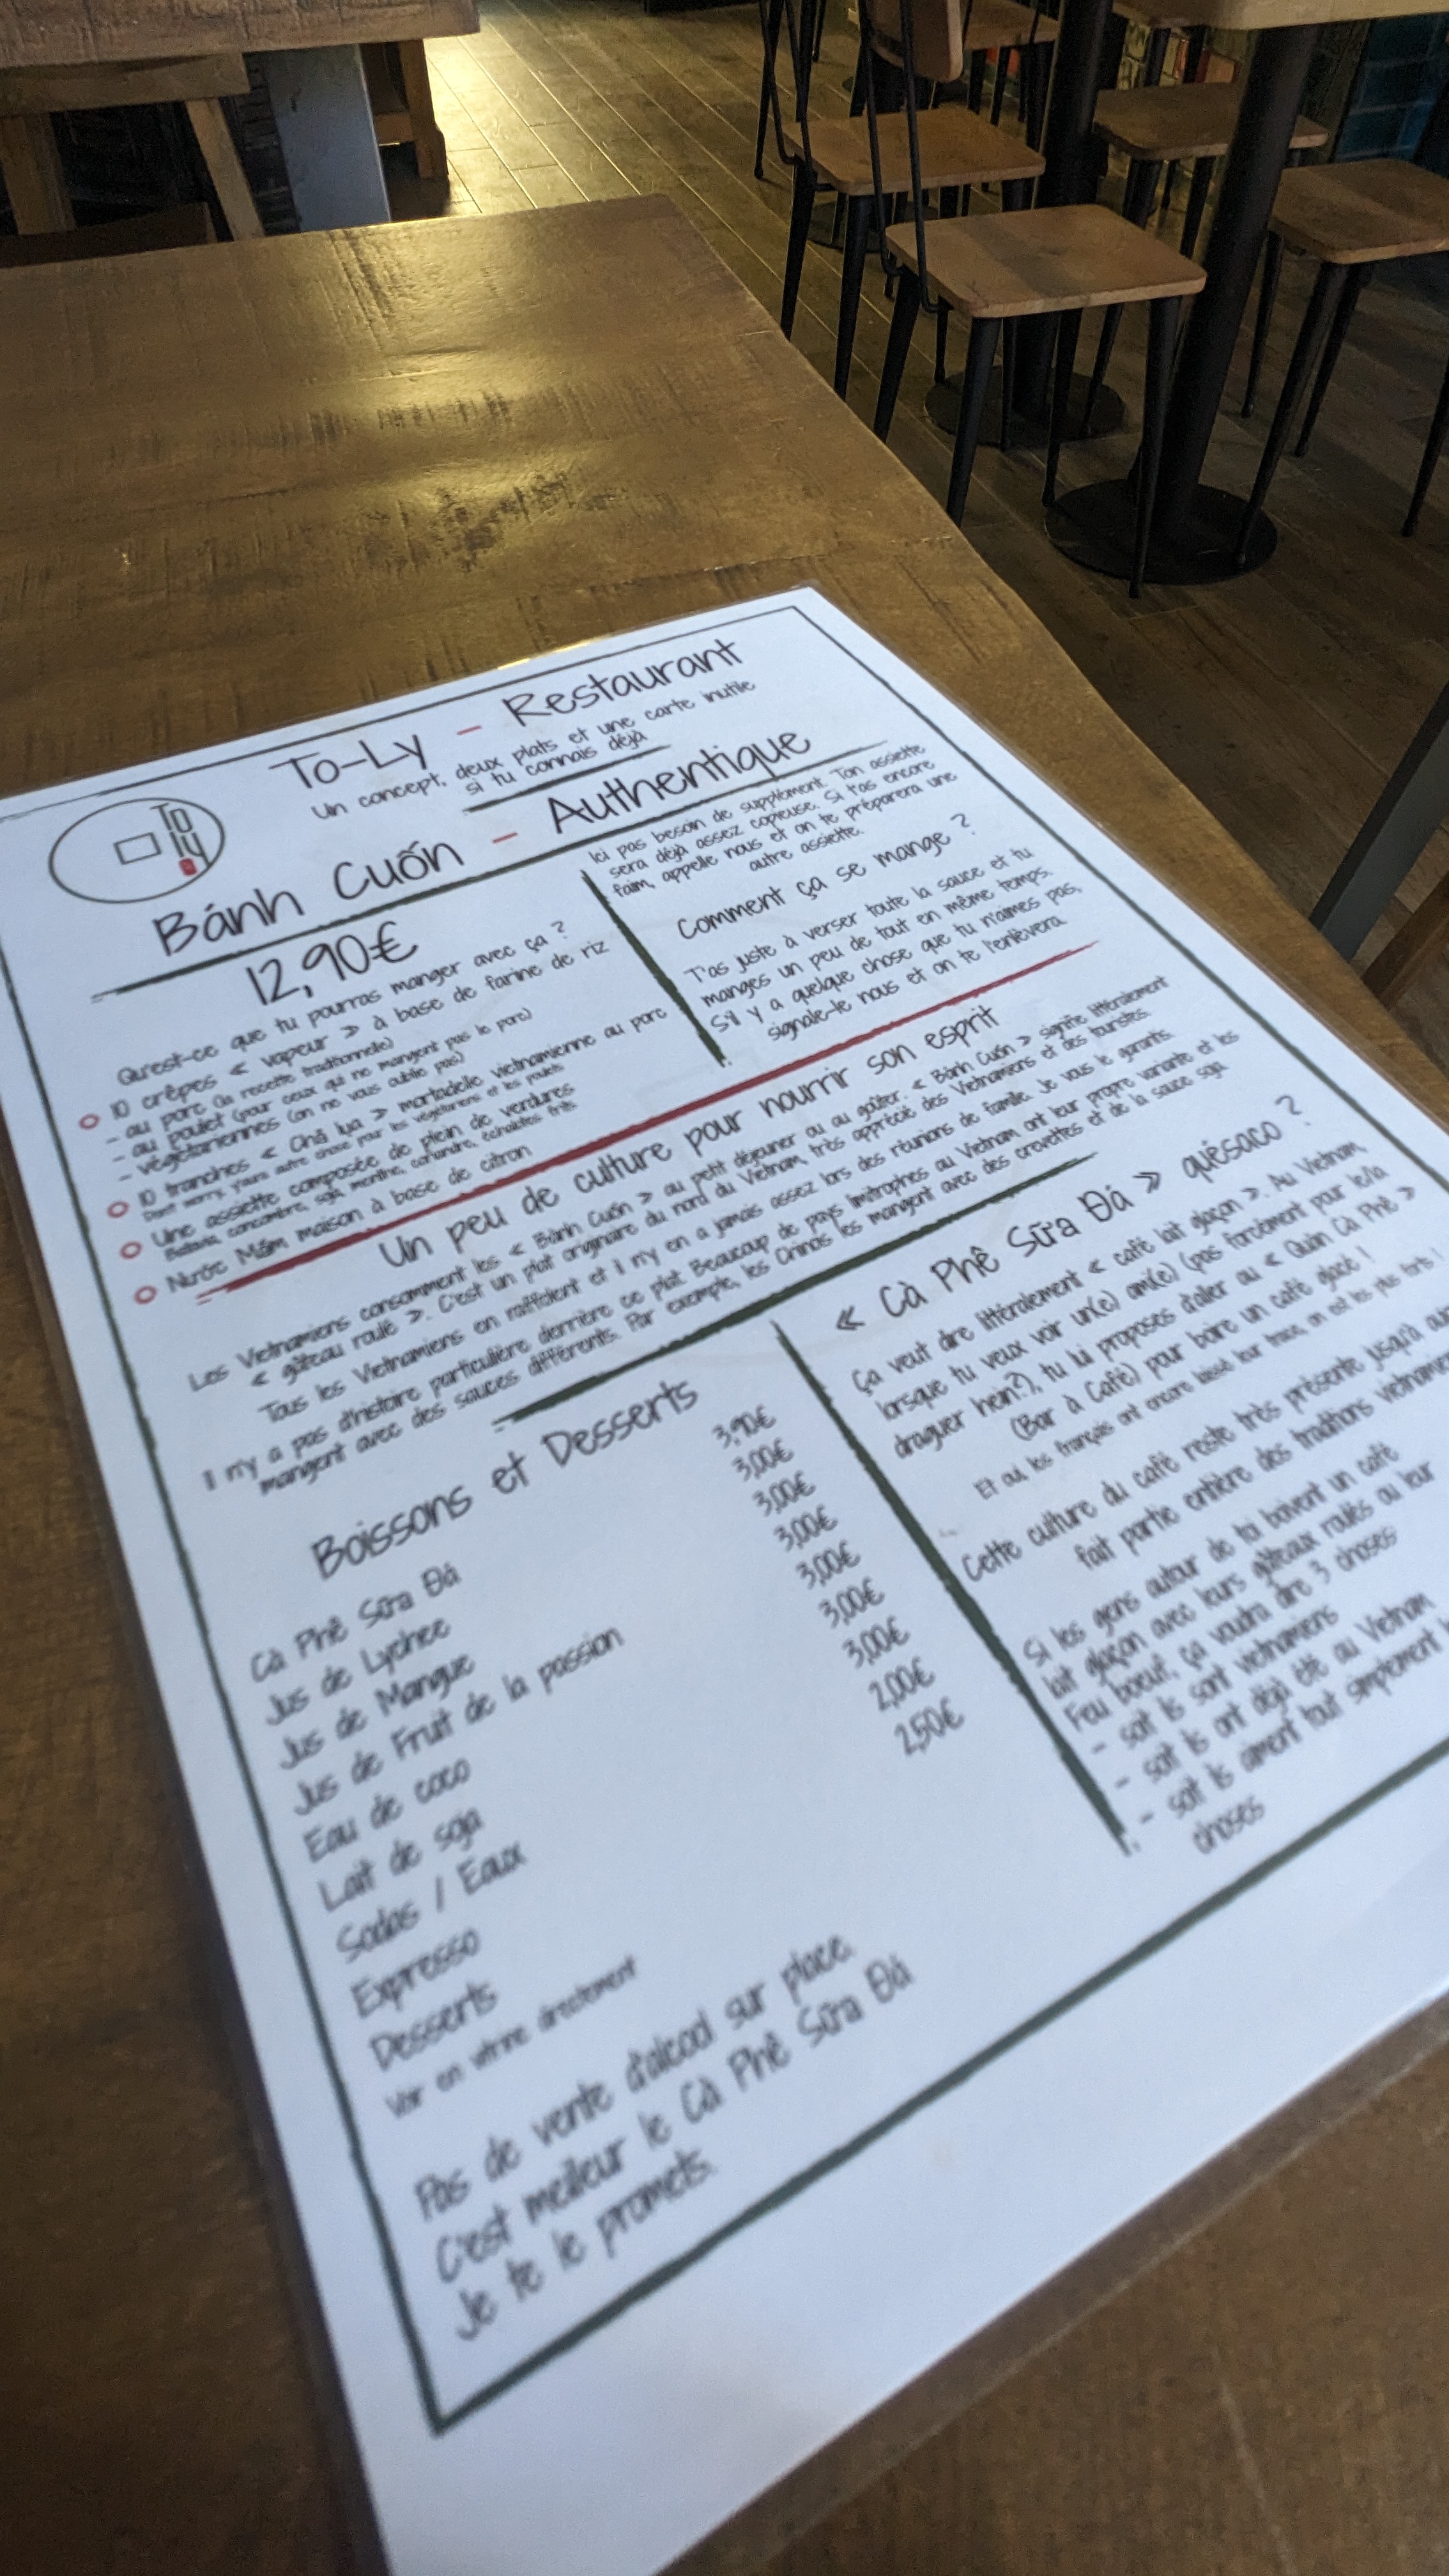 To-Ly - Restaurant
Un concept, deux plats et une carte inutile
si tu connais déjà
To
Ly
Bánh Cuốn - Authentique
12,90€
Qu'est-ce que tu pourras manger avec ça ?
10 crêpes « vapeur » à base de farine de riz
- au porc (la recette traditionnelle)
- au poulet (pour ceux qui ne mangent pas le porc)
- végétariennes (on ne vous oublie pas)
10 tranches « Chả lụa » mortadelle vietnamienne au porc
Dont worry, y'aura autre chose pour les végétariens et les poulets
Une assiette composée de plein de verdures
Batavia, concombre, soja, menthe, coriandre, échalotes frits
Nước Mắm maison à base de citron
Ici pas besoin de supplément. Ton assiette
sera déjà assez copieuse. Si t'as encore
faim, appelle nous et on te préparera une
autre assiette.
Comment ça se mange ?
T'as juste à verser toute la sauce et tu
manges un peu de tout en même temps.
S'il y a quelque chose que tu n'aimes pas,
signale-le nous et on te l'enlèvera.
Un peu de culture pour nourrir son esprit
Les Vietnamiens consomment les « Bánh Cuốn » au petit déjeuner ou au goûter. « Bánh Cuốn » signifie littéralement
« gâteau roulé ». C'est un plat originaire du nord du Vietnam, très apprécié des Vietnamiens et des touristes.
Tous les Vietnamiens en raffolent et il n'y en a jamais assez lors des réunions de famille. Je vous le garantis.
Il n'y a pas d'histoire particulière derrière ce plat. Beaucoup de pays limitrophes au Vietnam ont leur propre variante et les
mangent avec des sauces différents. Par exemple, les Chinois les mangent avec des crevettes et de la sauce soja.
Boissons et Desserts
Cà Phê Sữa Đá 3,90€
Jus de Lychee 3,00€
Jus de Mangue 3,00€
Jus de Fruit de la passion 3,00€
Eau de coco 3,00€
Lait de soja 3,00€
Sodas / Eaux 3,00€
Expresso 2,00€
Desserts 2,50€
Voir en vitrine directement
Pas de vente d'alcool sur place.
C'est meilleur le Cà Phê Sữa Đá
Je te le promets.
« Cà Phê Sữa Đá » quésaco ?
Ça veut dire littéralement « café lait glaçon ». Au Vietnam,
lorsque tu veux voir un(e) ami(e) (pas forcément pour le/la
draguer hein?), tu lui proposes d'aller au « Quán Cà Phê »
(Bar à Café) pour boire un café glacé !
Et oui, les français ont encore laissé leur trace, on est les plus forts !
Cette culture du café reste très présente jusqu'à
fait partie entière des traditions
Si les gens autour de toi boivent un café
lait glaçon avec leurs gâteaux roulés ou leur
Feu boeuf, ça voudra dire 3 choses
- soit ils sont vietnamiens
- soit ils ont déjà été au Vietnam
- soit ils aiment tout simplement
choses